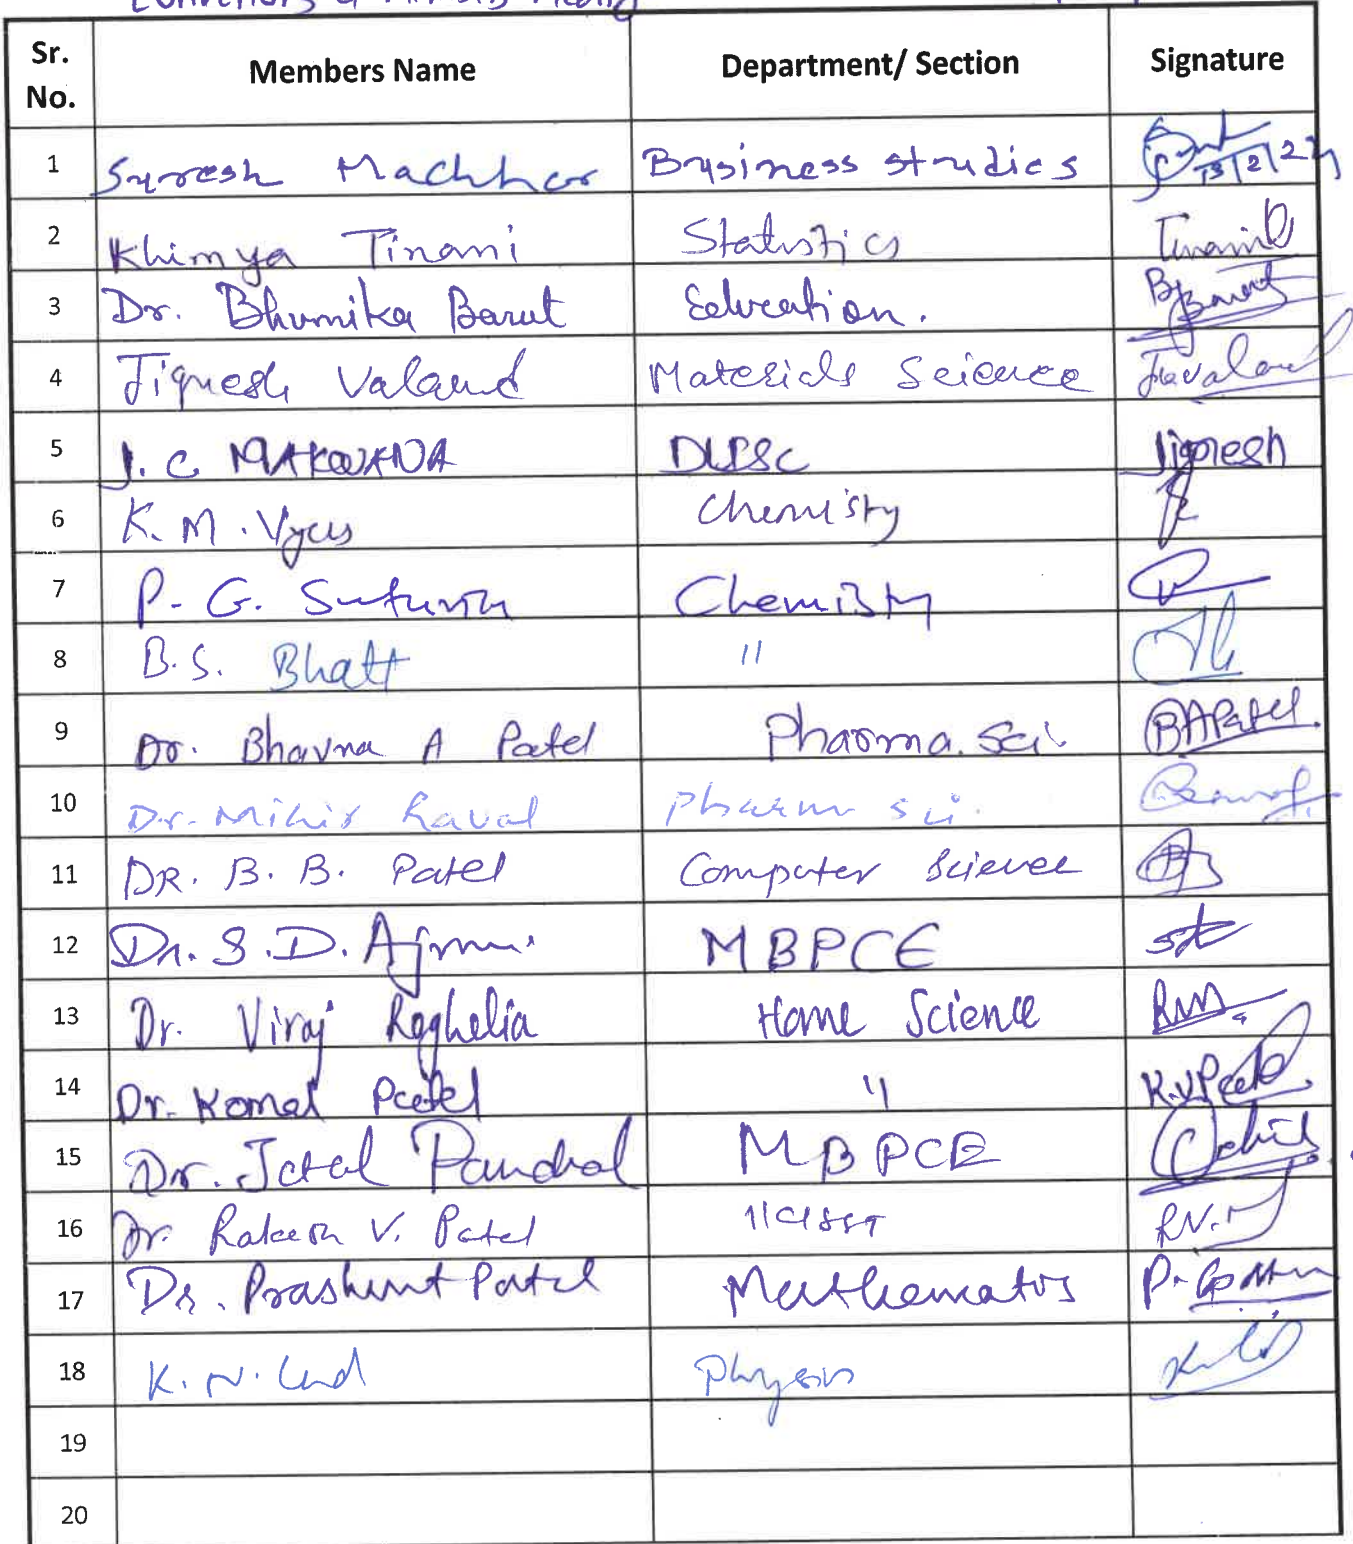 Meeting
Sr. No. Members Name Department/ Section Signature
1 Suresh Machhar Business studies 13/2/2
2 Khimya Tinani Statistics Tinani
3 Dr. Bhumika Barot Education. B Barot
4 Jignesh Valand Materials Science Valand
5 J. C. MAKWANA DLISc Jignesh
6 K. M. Vyas Chemistry
7 P. G. Chemistry
8 B. S. Bhatt "
9 Dr. Bhavna A Patel Pharma. Sci. BAPatel
10 Dr. Mihir Raval Pharm sci.
11 DR. B. B. Patel Computer Science
12 Dr. S. D. MBPCE
13 Dr. Viraj Roghelia Home Science
14 Dr. Komal Patel " K.V.Patel
15 Dr. MBPCE
16 Dr. Rakesh V. Patel
17 Dr. Prashant Patel Mathematics
18 K. N. Physics
19
20